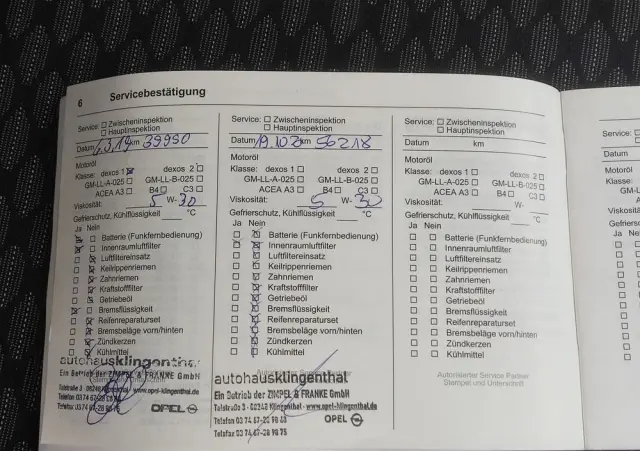 6 Servicebestätigung
Service: Zwischeninspektion
Hauptinspektion
Datum 3.19 km 39990
Motoröl
Klasse: dexos 1 dexos 2
GM-LL-A-025 GM-LL-B-025
ACEA A3 B4 C3
Viskosität: 5 W- 30
Gefrierschutz, Kühlflüssigkeit °C
Ja Nein
Batterie (Funkfernbedienung)
Innenraumluftfilter
Luftfiltereinsatz
Keilrippenriemen
Zahnriemen
Kraftstofffilter
Getriebeöl
Bremsflüssigkeit
Reifenreparaturset
Bremsbeläge vorn/hinten
Zündkerzen
Kühlmittel
autohausklingenthal
Ein Betrieb der ZIMPEL & FRANKE GmbH
Talstraße 3 - 08248 Klingenthal www.opel-klingenthal.de
Telefon 03 74 67-28
Telefax 03 74 67-28 98 75
OPEL
Service: Zwischeninspektion
Hauptinspektion
Datum 19.10.2 km 56218
Motoröl
Klasse: dexos 1 dexos 2
GM-LL-A-025 GM-LL-B-025
ACEA A3 B4 C3
Viskosität: 5 W- 30
Gefrierschutz, Kühlflüssigkeit °C
Ja Nein
Batterie (Funkfernbedienung)
Innenraumluftfilter
Luftfiltereinsatz
Keilrippenriemen
Zahnriemen
Kraftstofffilter
Getriebeöl
Bremsflüssigkeit
Reifenreparaturset
Bremsbeläge vorn/hinten
Zündkerzen
Kühlmittel
Autorisierter Service Partner
autohausklingenthal
Ein Betrieb der ZIMPEL & FRANKE GmbH
Talstraße 3 - 08248 Klingenthal - www.opel-klingenthal.de
Telefon 03 74 67-28 98 60
Telefax 03 74 67-28 98 75
OPEL
Service: Zwischeninspektion
Hauptinspektion
Datum km
Motoröl
Klasse: dexos 1 dexos 2
GM-LL-A-025 GM-LL-B-025
ACEA A3 B4 C3
Viskosität: W-
Gefrierschutz, Kühlflüssigkeit °C
Ja Nein
Batterie (Funkfernbedienung)
Innenraumluftfilter
Luftfiltereinsatz
Keilrippenriemen
Zahnriemen
Kraftstofffilter
Getriebeöl
Bremsflüssigkeit
Reifenreparaturset
Bremsbeläge vorn/hinten
Zündkerzen
Kühlmittel
Autorisierter Service Partner
Stempel und Unterschrift
Service:
Datum
Motoröl
Klasse: de
GM-LL-A
ACEA
Viskosität:
Gefrierschu
Ja Nein